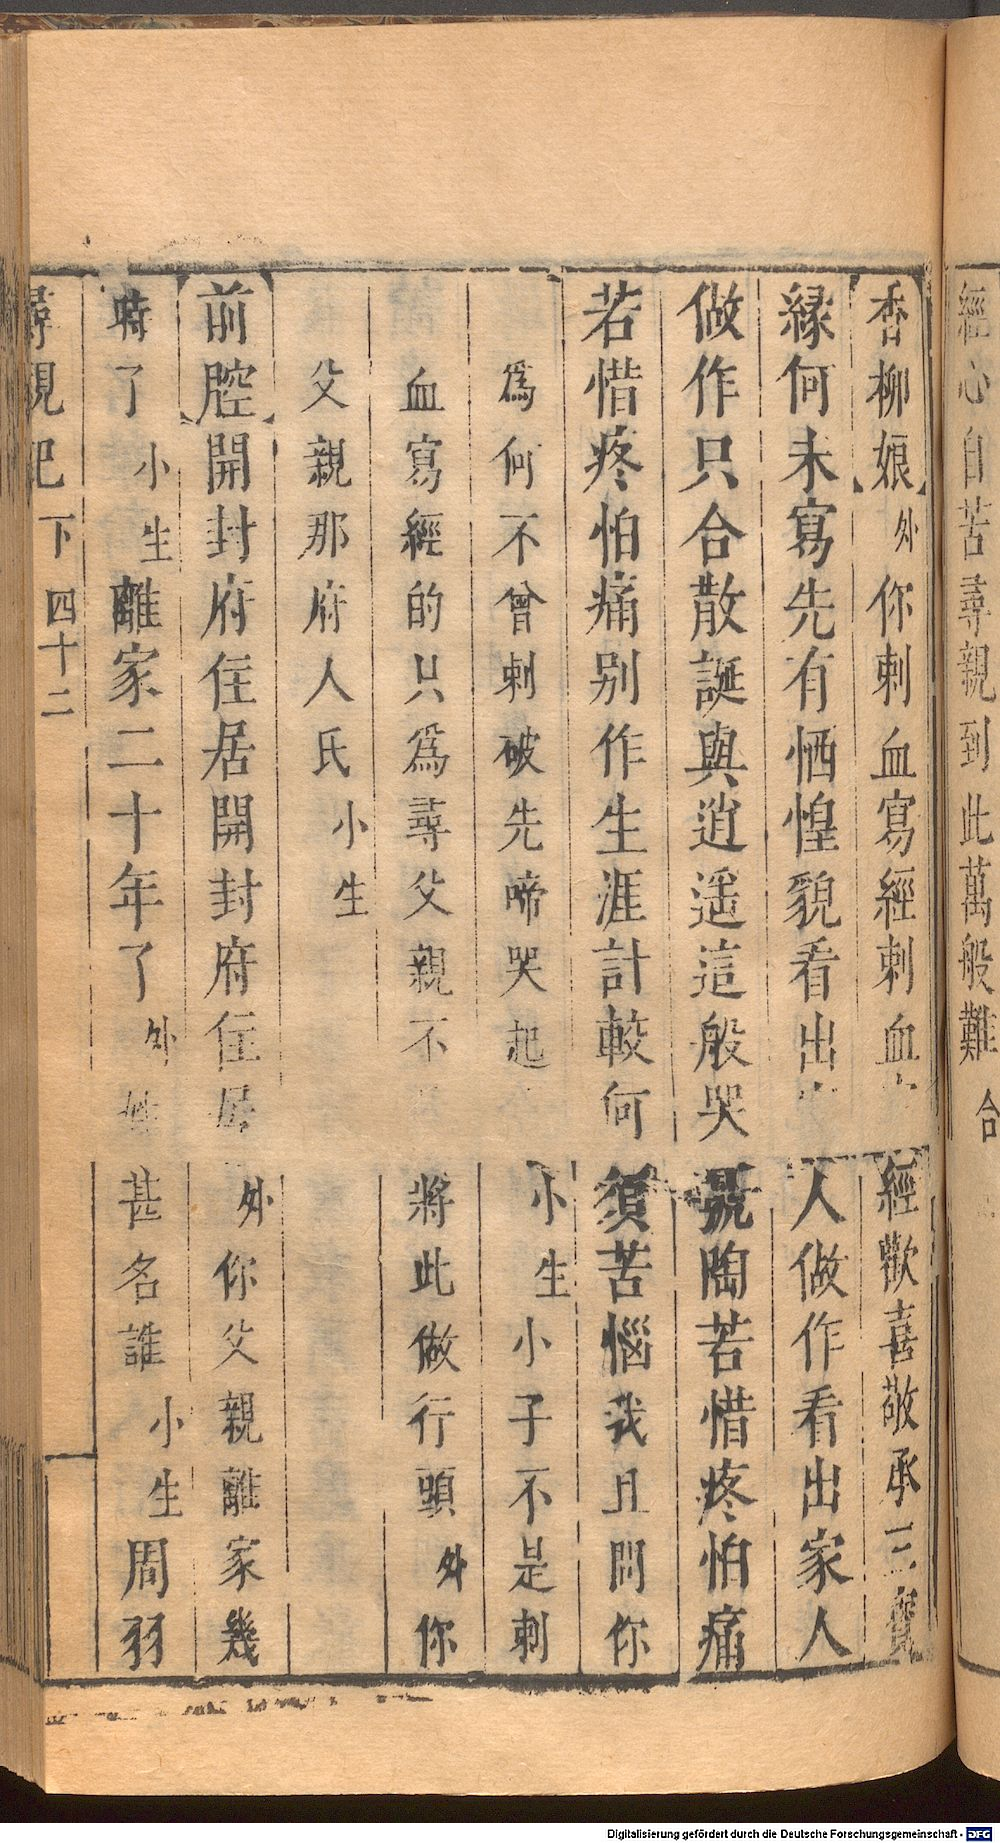 經心自苦尋親到此萬般難合
【香柳娘】外你刺血寫經刺血寫經歡喜敬承三寶
緣何未寫先有恓惶貌看出家人做作看出家人
做作只合散誕與逍遥這般哭號陶若惜疼怕痛
若惜疼怕痛别作生涯計較何須苦惱我且問你
爲何不曾刺破先啼哭起小生小子不是刺
血寫經的只爲尋父親不將此做行頭外你
父親那府人氏小生
【前腔】開封府住居開封府住居外你父親離家幾
時了小生離家二十年了外姓甚名誰小生周羽
尋親記下四十二
Digitalisierung gefördert durch die Deutsche Forschungsgemeinschaft - DFG